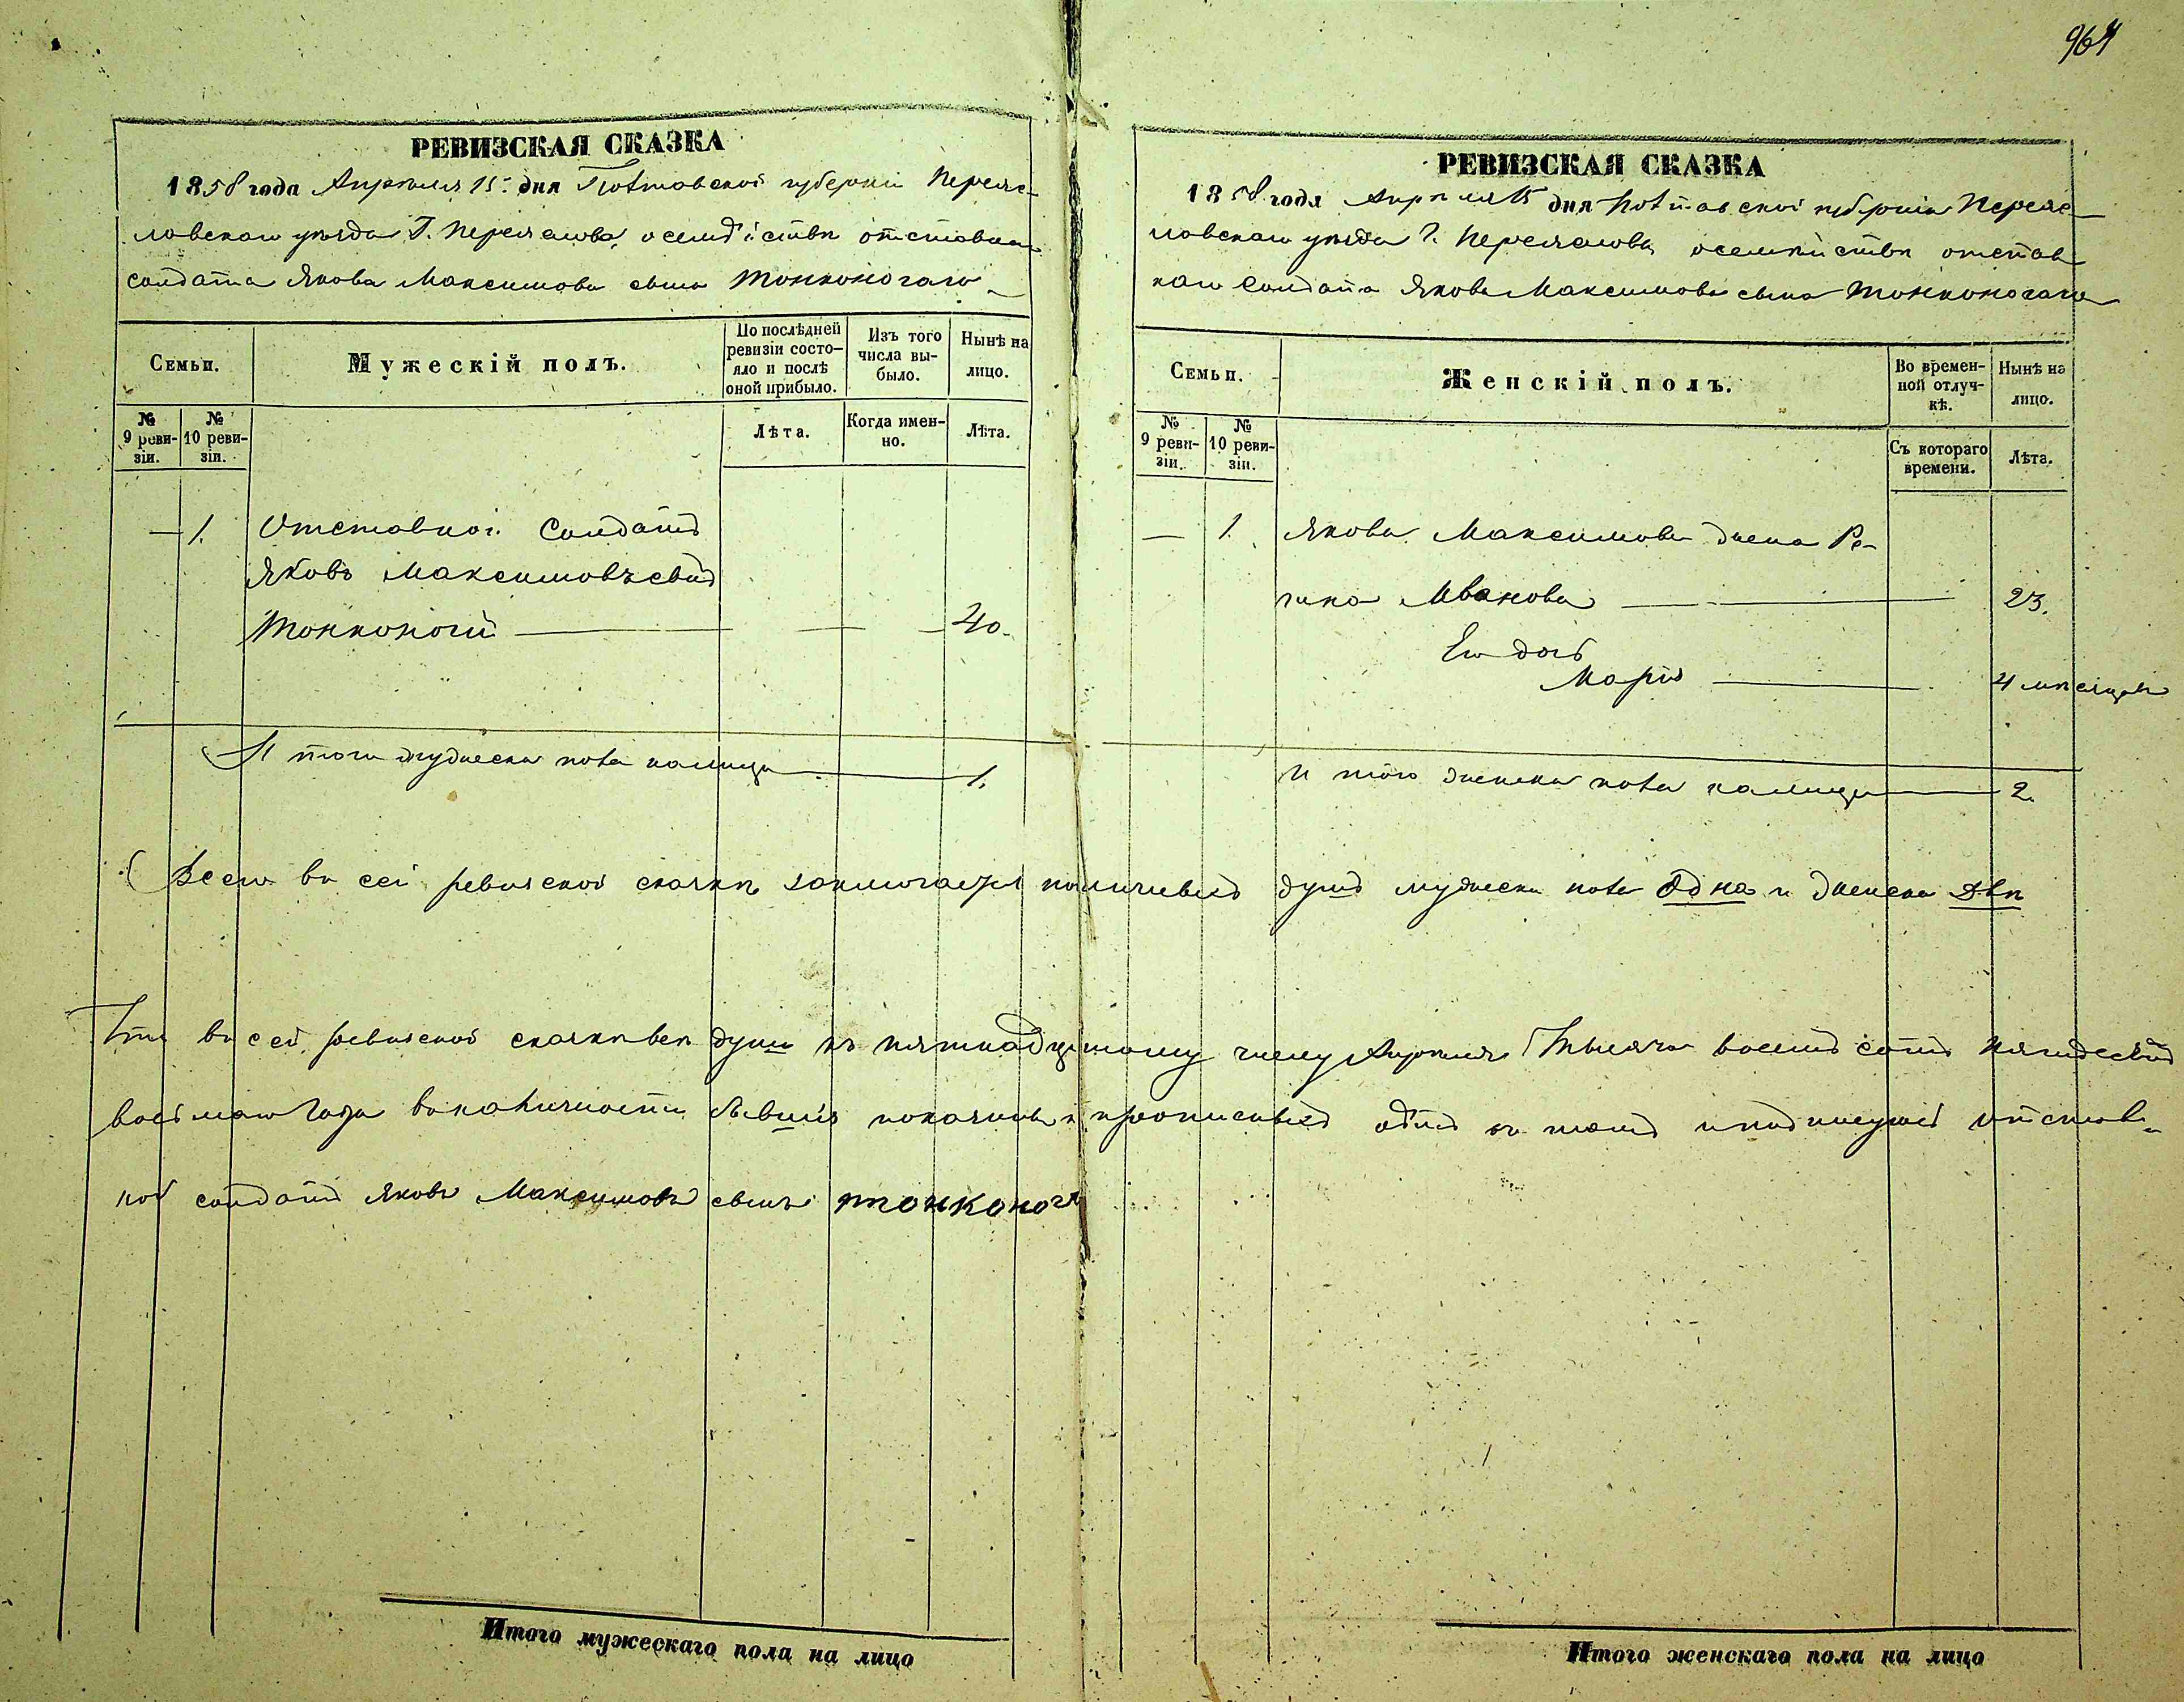 964
РЕВИЗСКАЯ СКАЗКА
1858 года Апреля 15. дня Полтавской губерніи Переяс-
ловскаго уезда Г. Переяслова, о семействе отставнаго
солдата Якова Максимова сына Тонконогаго
Семьи.
Мужескій полъ.
По послѣдней ревизіи состо-
яло и послѣ оной прибыло.
Изъ того числа вы-
было.
Нынѣ на лицо.
№ 9 реви-
зіи.
№ 10 реви-
зіи.
Лѣта.
Когда имен-
но.
Лѣта.
— 1. Отставной Солдатъ
Яковъ Максимовъ сынъ
Тонконогій — 40.
Итого мужеска пола налицо — 1.
РЕВИЗСКАЯ СКАЗКА
1858 года Апреля 15 дня Полтавской губерніи Переяс-
ловскаго уезда Г. Переяслова о семействе отстав
наго Солдата Якова Максимова сына Тонконогаго
Семьи.
Женскій полъ.
Во времен-
ной отлуч-
кѣ.
Нынѣ на лицо.
№ 9 реви-
зіи.
№ 10 реви-
зіи.
Съ котораго времени.
Лѣта.
— 1. Якова Максимова жена Ре-
гина Иванова — 23.
Его дочь
Марія — 4 месяцов
Итого женска пола налицо — 2.
Всего в сей ревизской сказке заключается наличных душъ мужеска пола одна и женска две
Что в сей ревизской сказке все души къ пятнадцатому числу Апреля Тысяча восемъ сотъ пятдесятъ
восьмаго Года в наличности бывшія показаны и прописных нетъ в томъ и подписуюсь отстав-
ной солдатъ Яковъ Максимовъ сынъ тонконог
Итого мужескаго пола на лицо
Итого женскаго пола на лицо